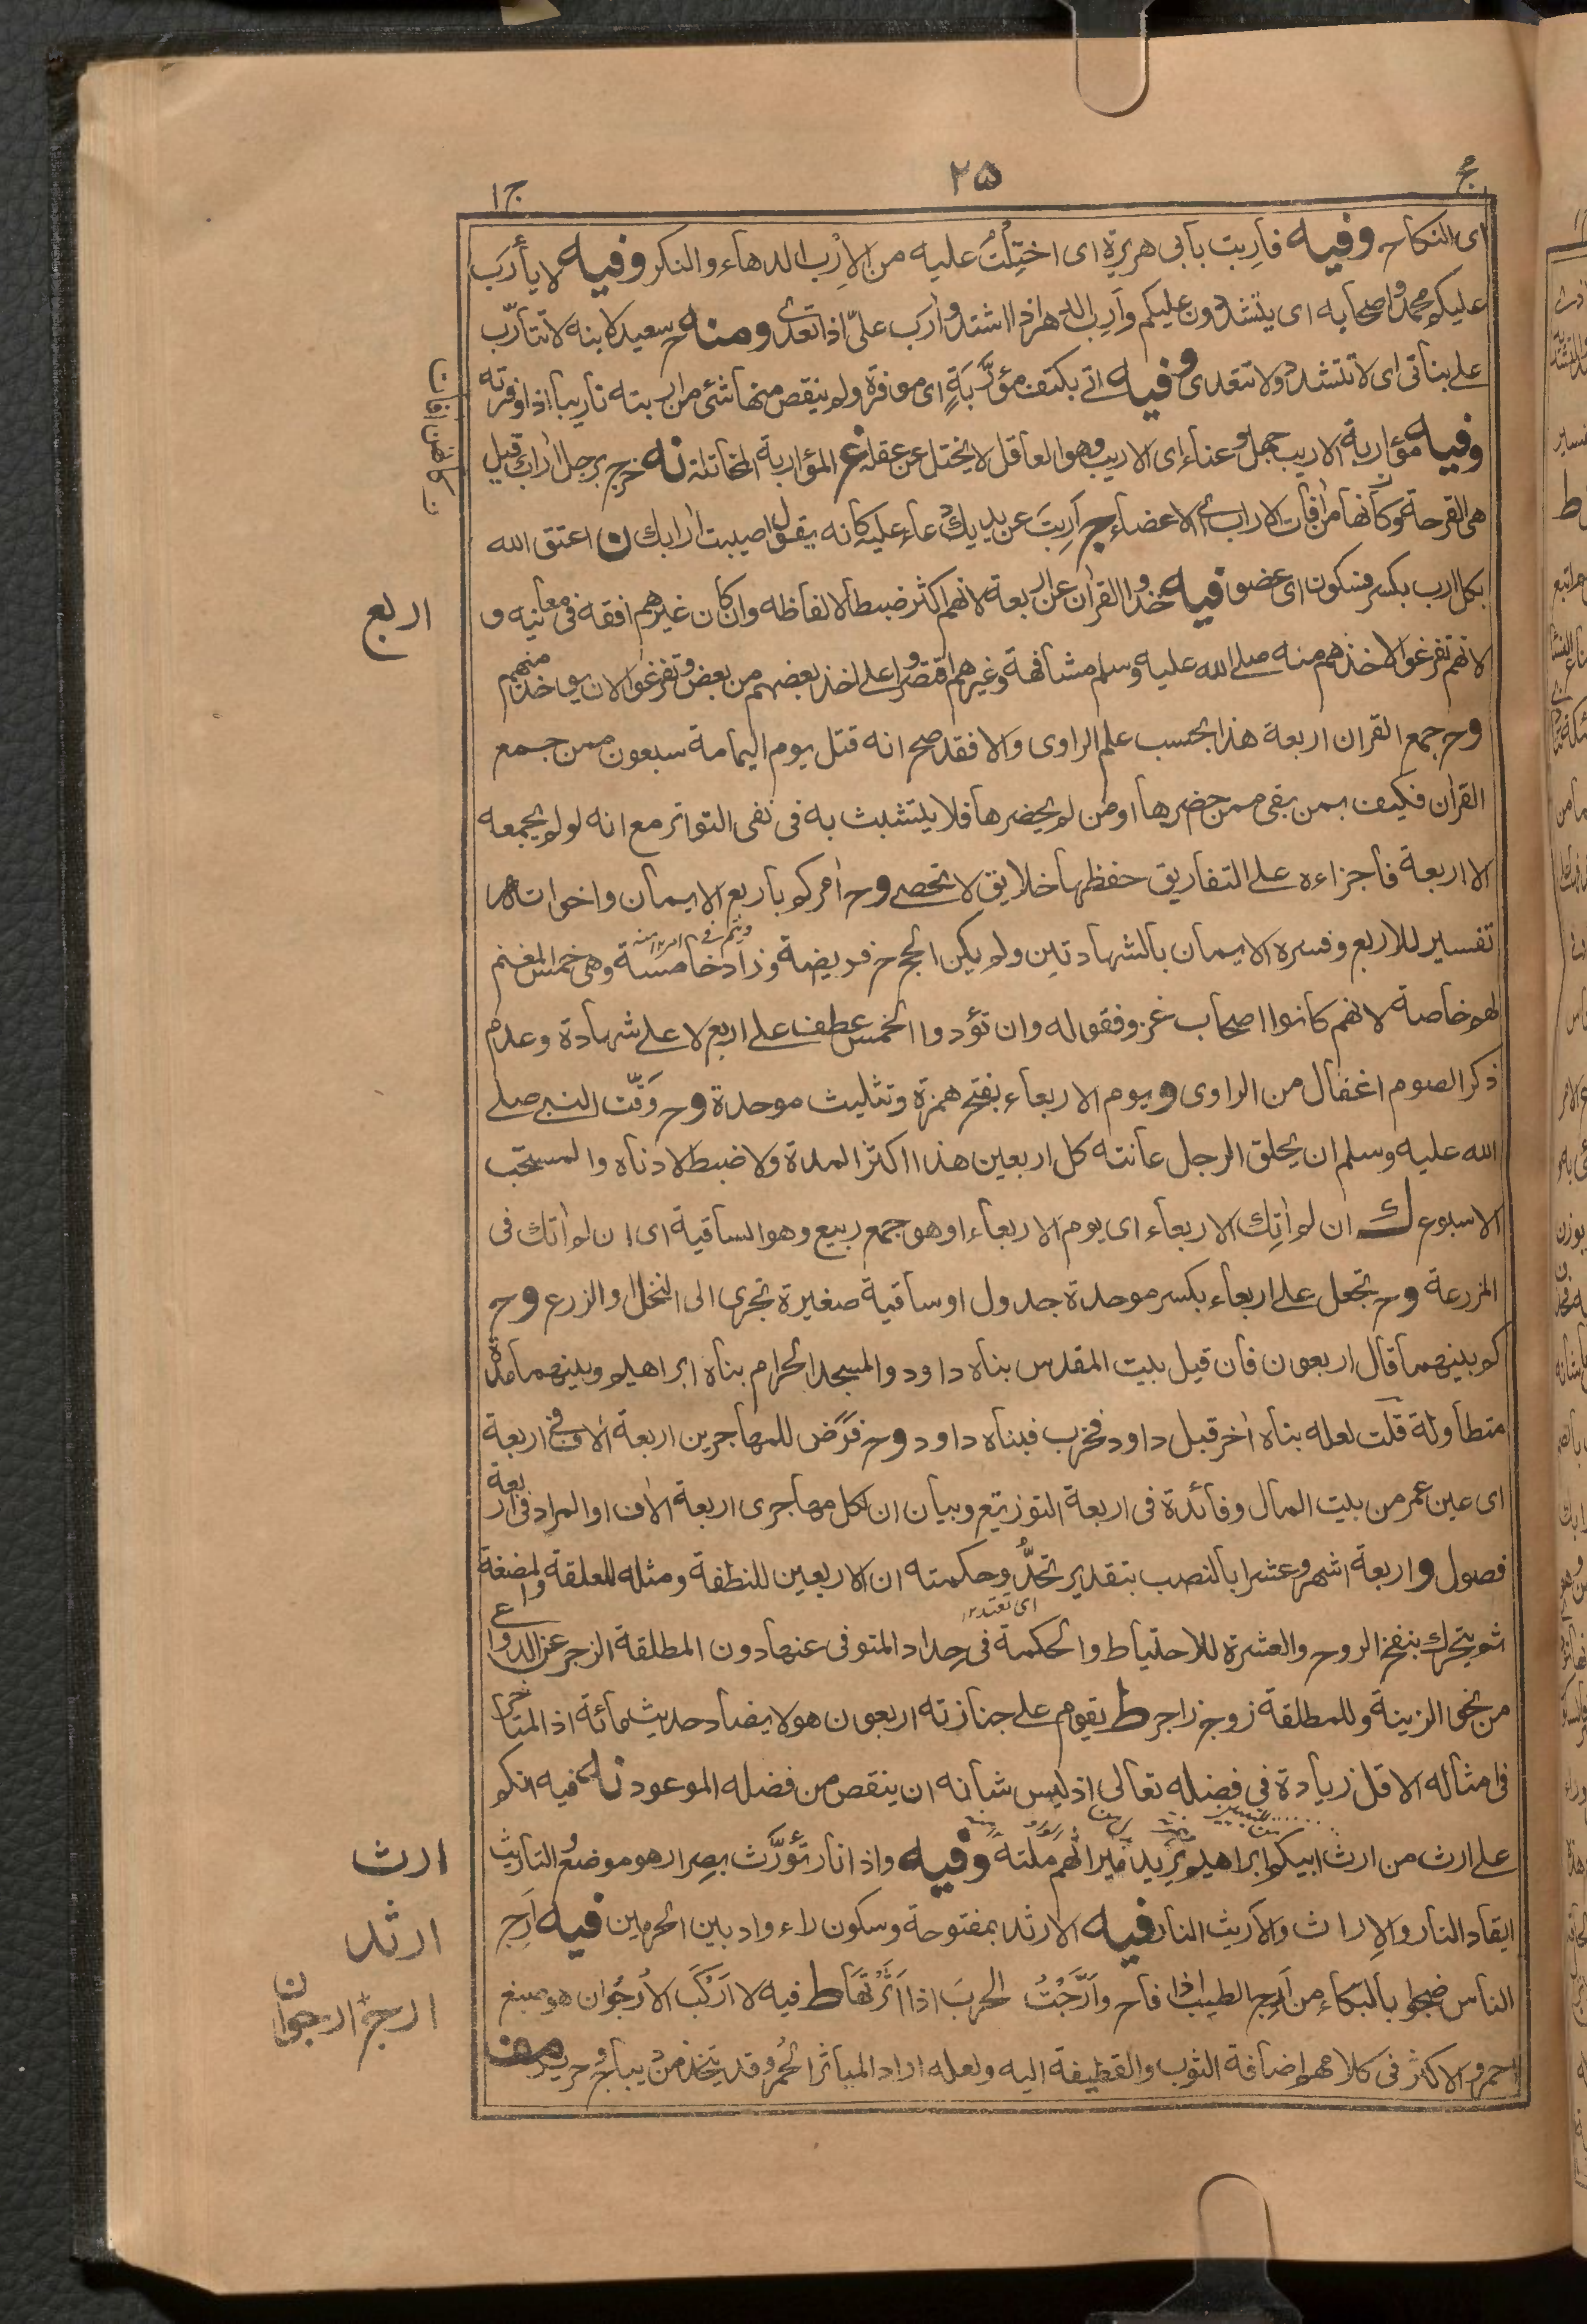 ج
٢٥
ج ا
اى النكاح وفيه فأربت بأبى هريرة اى احتلت عليه من الإرب الدهاء والنكر وفيه لا يأرب
عليكم محمد واصحابه اى يتشددون عليكم وأرب الدهر اذا اشتد وأرب علىّ اذا تعدى ومنه ح سعيد لابنه لا تتأرّب
على بناتى اى لا تتشدد ولا تتعدى وفيه اتى بكتف مؤرَّبَةٍ اى موفرة ولم ينقص منها شئ من اربته تأريبا اذا وفرته
وفيه مؤاربة الاريب جهل وعناء اى الاريب وهو العاقل لا يختل عن عقله غ المؤاربة المخاتلة نه خرج برجل اراب قيل
هى القرحة وكأنها من أفات الاراب اى الاعضاء ج أرِبتَ عن يديك دعاء عليه كانه يقول اصيبت ارابك ن اعتق الله
بكل ارب بكسر فسكون اى عضو فيه خذوا القرأن عن اربعة لانهم اكثر ضبطا لالفاظه وان كان غيرهم افقه فى معانيه و
لانهم تفرغوا لاخذهم منه صلى الله عليه وسلم مشافهة وغيرهم اقتصروا على اخذ بعضهم من بعض وتفرغوا لان يوخذ منهم
وح جمع القران اربعة هذا بحسب علم الراوى والا فقد صح انه قتل يوم اليمامة سبعون ممن جمع
القرأن فكيف بمن بقى ممن حضرها او من لم يحضرها فلا يتشبث به فى نفى التواتر مع انه لو لم يجمعه
الا اربعة فأجزاءه على التفاريق حفظها خلايق لا تحصى وح أمركم بأربع الايمان واخواته
تفسير للاربع وفسره الايمان بالشهادتين ولم يكن الحج ح فريضة وزاد خامسة وهى خمس المغنم
لهم خاصة لانهم كانوا اصحاب غزو فقوله وان تؤدوا الخمس عطف على اربع لا على شهادة وعدم
ذكر الصوم اغفال من الراوى و يوم الاربعاء بفتح همزة وتثليث موحدة وح وَقّت النبى صلى
الله عليه وسلم ان يحلق الرجل عانته كل اربعين هذا اكثر المدة ولا ضبط لادناه والمستحب
الاسبوع ك ان لم أتِك الاربعاء اى يوم الاربعاء او هو جمع ربيع وهو الساقية اى ان لم أتك فى
المزرعة وح تجعل على اربعاء بكسر موحدة جدول او ساقية صغيرة تجرى الى النخل او الزرع وح
كم بينهما قال اربعون فان قيل بيت المقدس بناه داود والمسجد الحرام بناه ابراهيم وبينهما مدة
متطاولة قلت لعله بناه أخر قبل داود فخرب فبناه داود وح فرَض للمهاجرين اربعة ألاف فى اربعة
اى عين عمر من بيت المال وفائدة فى اربعة التوزيع وبيان ان لكل مهاجرى اربعة الاف او المراد فى اربعة
فصول و اربعة اشهر وعشرا بالنصب بتقدير تحدُّ وحكمته ان الاربعين للنطفة ومثله للعلقة والمضغة
اى تعتد
ثم يتحرك بنفخ الروح والعشرة للاحتياط والحكمة فى حداد المتوفى عنها دون المطلقة الزجر عن الدواعى
من نحو الزينة وللمطلقة زوج زاجر ط يقوم على جنازته اربعون هو لا يضاد حديث مائة اذ المتأخر
فى امثاله الاقل زيادة فى فضله تعالى اذ ليس شانه ان ينقص من فضله الموعود نه فيه انكم
على ارث من ارث ابيكم ابراهيم يريد ميراثهم ملته وفيه واذا نار تُؤرَّث بصرار هو موضع التأريث
ايقاد النار والإراث والأريث النار فيه الارثد بمفتوحة وسكون راء واد بين الحرمين فيه أرِج
الناس ضجوا بالبكاء من أرِج الطيب اذا فاح وأرَّجْتُ الحربَ اذا أثَرْتَهَا ط فيه لا أركَب الأُرجُوان هو صبغ
احمر والاكثر فى كلامهم اضافة الثوب والقطيفة اليه ولعله اراد المياثر الحُمُر وقد يتخذ من ديباج وحرير
اربع
ارث
ارثد
ارج ارجوان